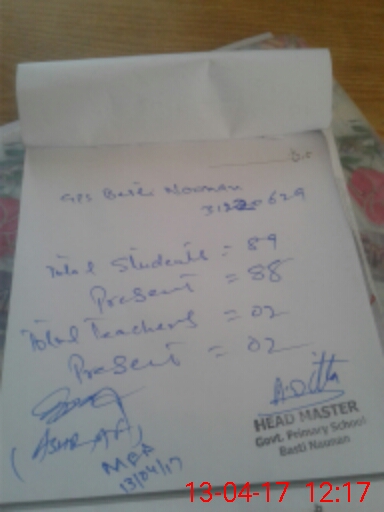 GPS Basti Nooman
31220629
Total Students = 89
Present = 88
Total Teachers = 02
Present = 02
(ASHRAF)
MEA
13/04/17
HEAD MASTER
Govt. Primary School
Basti Nooman
13-04-17 12:17